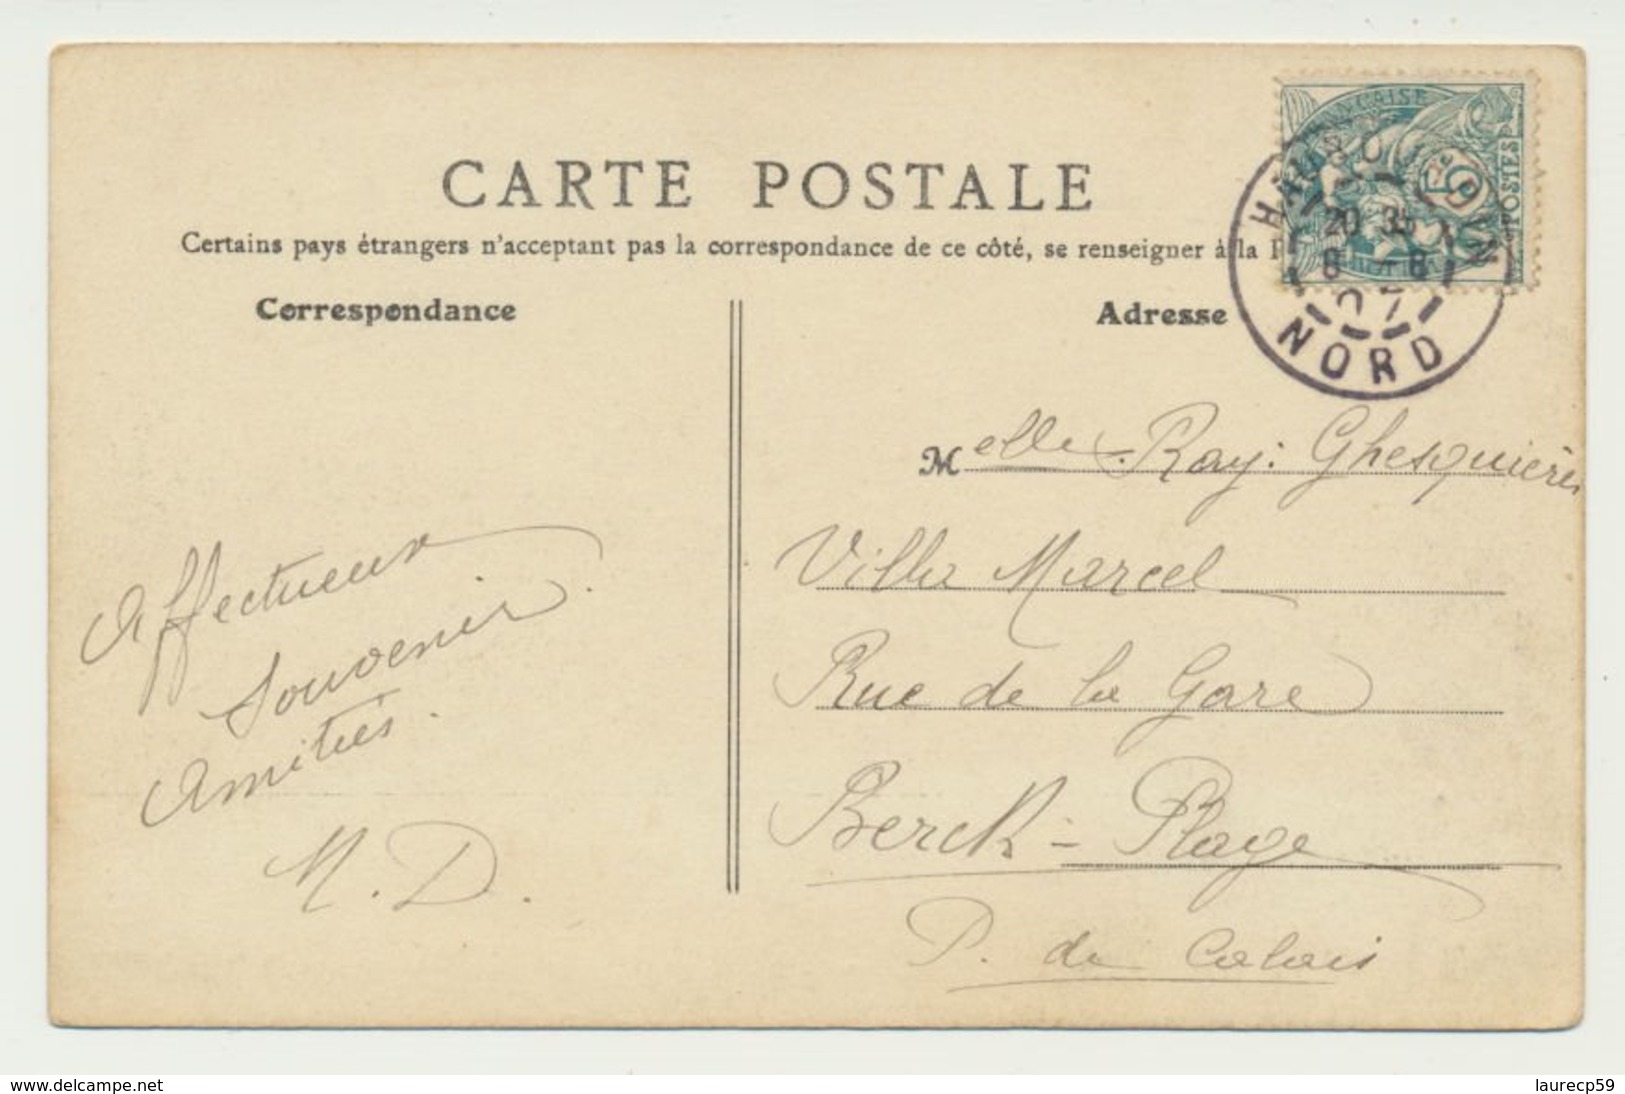 CARTE POSTALE
Certains pays étrangers n'acceptant pas la correspondance de ce côté, se renseigner à la
Correspondance
Adresse
FRANÇAISE
POSTES
5
20 35
8 8
07
NORD
Melle Ray: Ghesquières
Villa Marcel
Rue de la Gare
Berck-Plage
P. de Calais
Affectueux
Souvenir.
Amitiés.
M. D.
www.delcampe.net
laurecp59